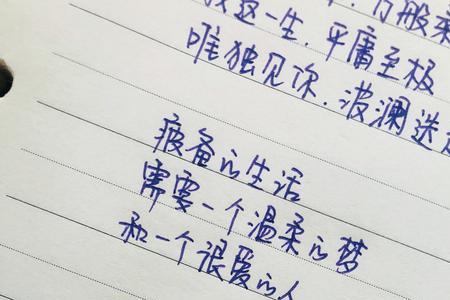 这一生.平庸至极
唯独见你.波澜迭
疲备的生活
需要一个温柔的梦
和一个很爱的人